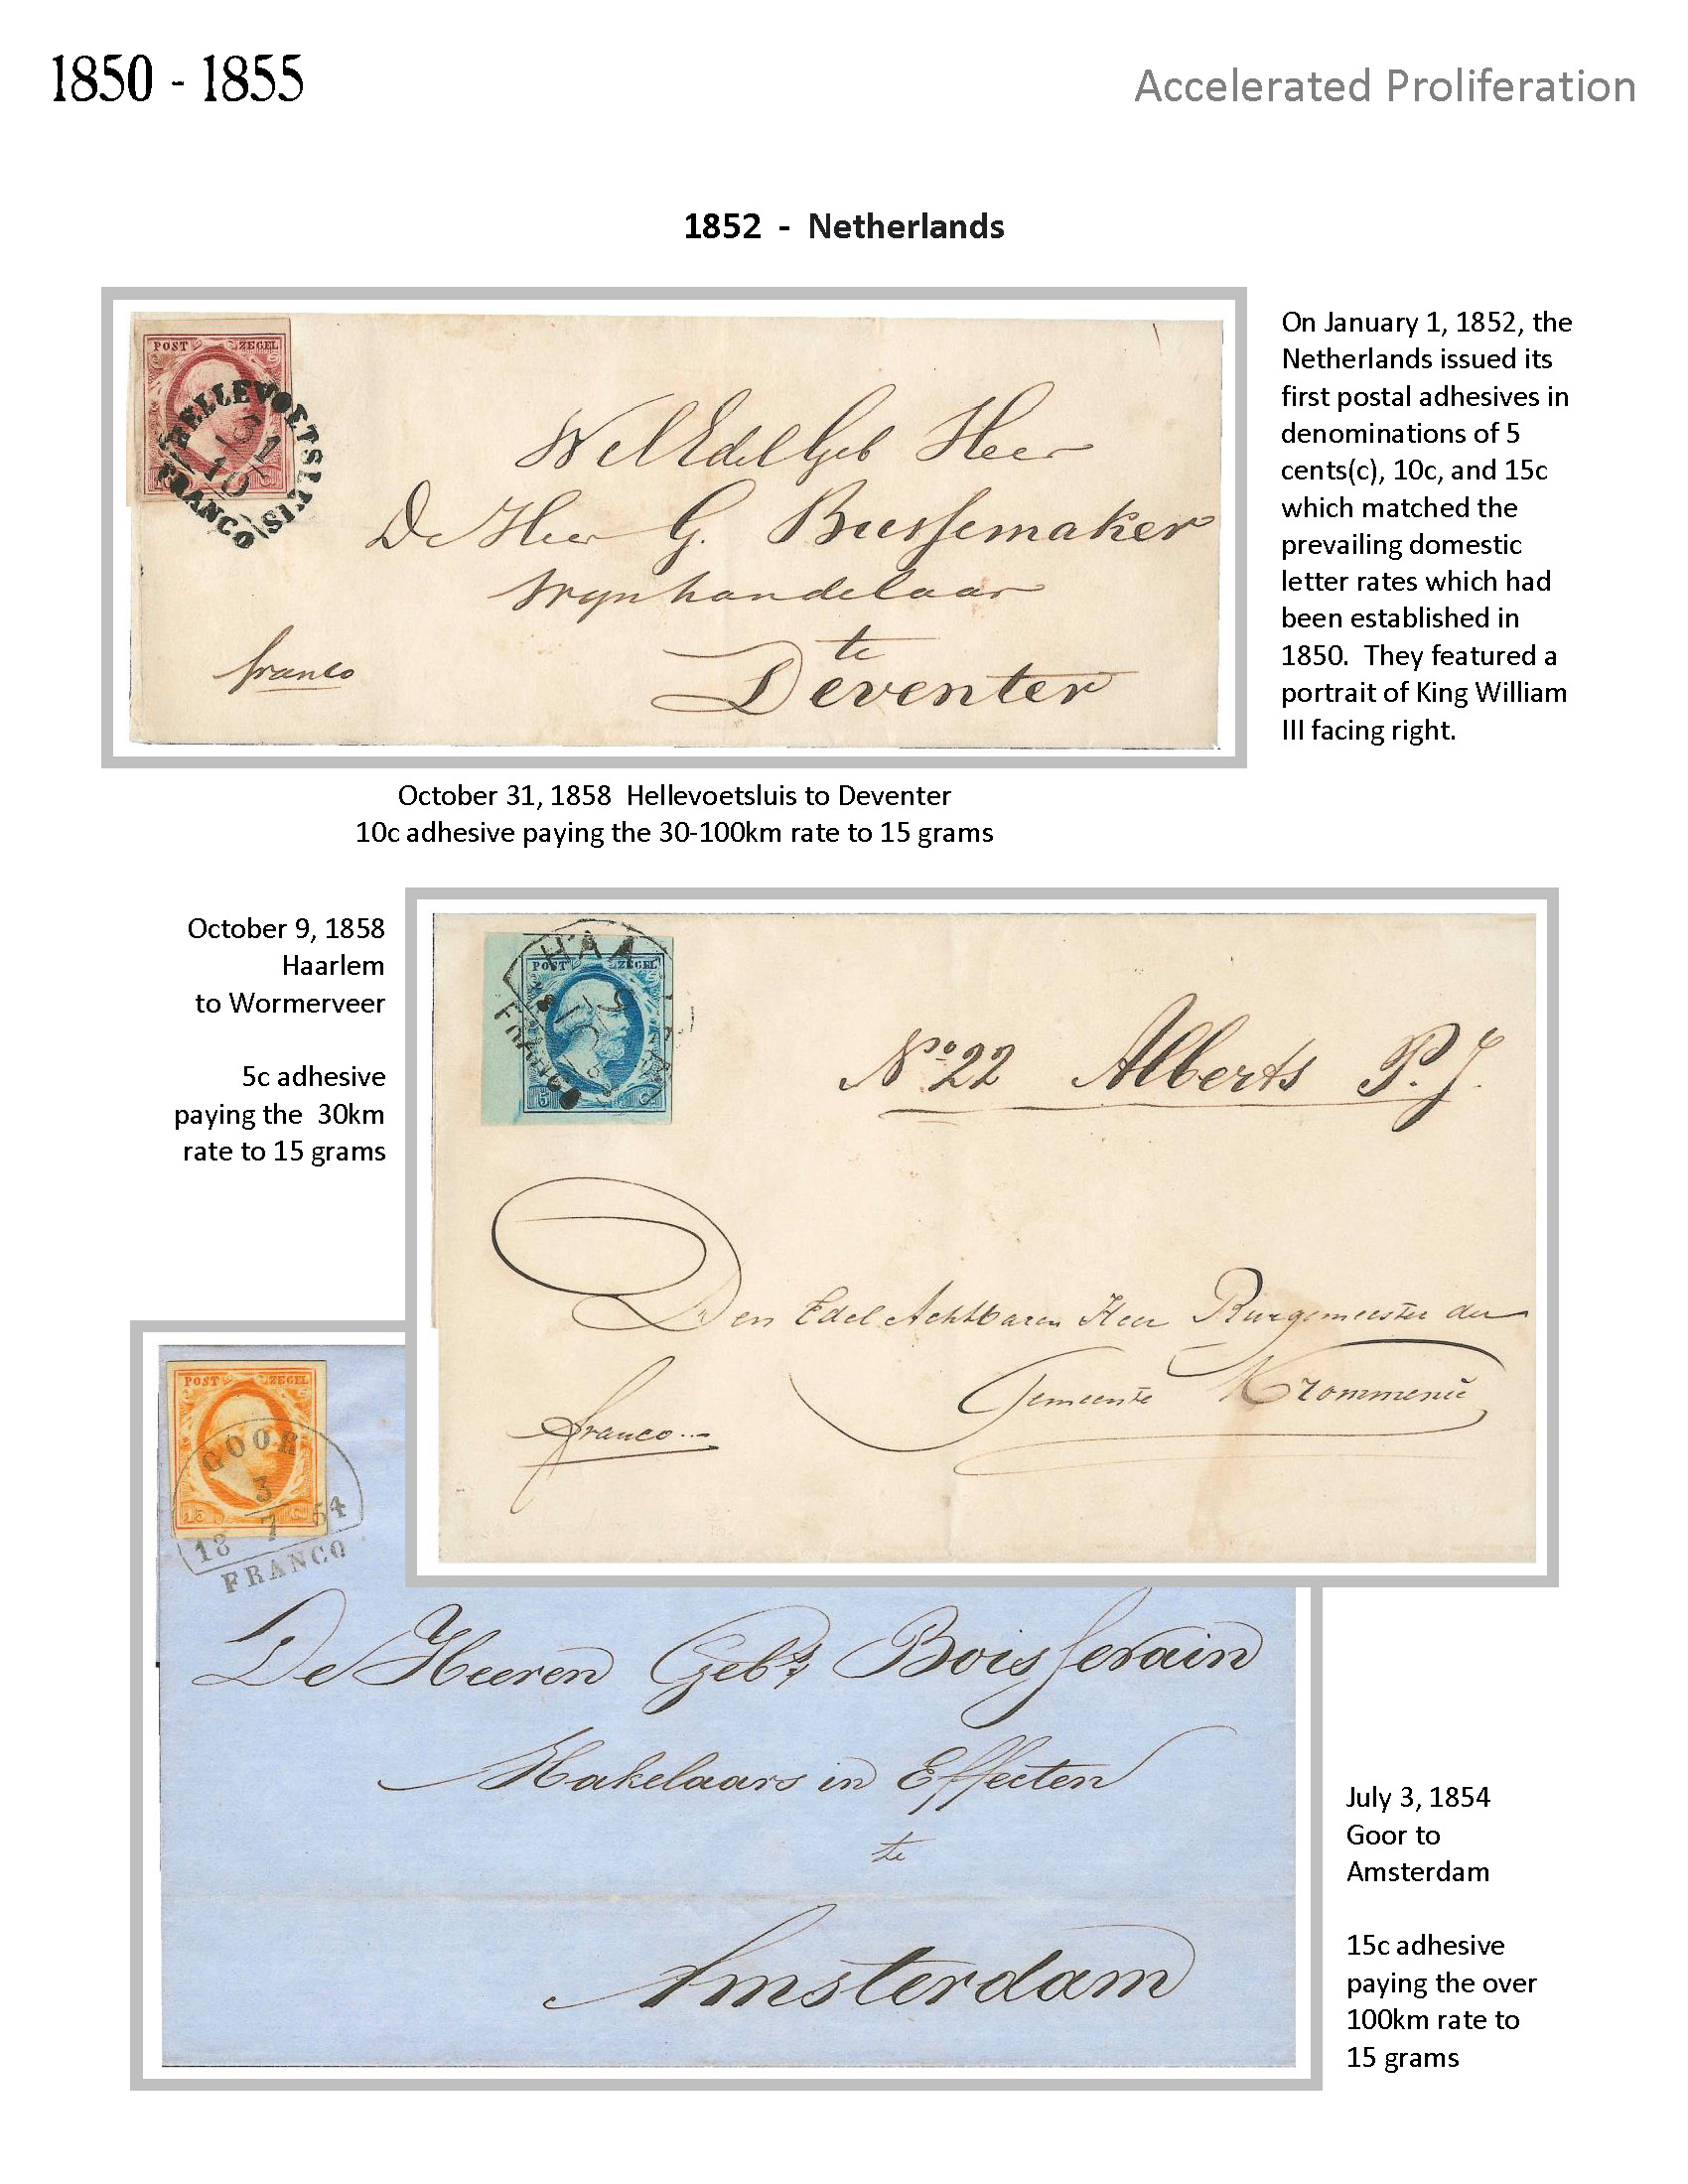 1850 - 1855
Accelerated Proliferation
1852 - Netherlands
POST ZEGEL
HELLEVOETSLUIS
31
10
FRANCO
WelEdelGeb Heer
De Heer G. Bussemaker
Wynhandelaar
te
Deventer
franco
On January 1, 1852, the
Netherlands issued its
first postal adhesives in
denominations of 5
cents(c), 10c, and 15c
which matched the
prevailing domestic
letter rates which had
been established in
1850. They featured a
portrait of King William
III facing right.
October 31, 1858 Hellevoetsluis to Deventer
10c adhesive paying the 30-100km rate to 15 grams
October 9, 1858
Haarlem
to Wormerveer
5c adhesive
paying the 30km
rate to 15 grams
POST ZEGEL
5 C
FRANCO
No 22 Alberts P. J.
Den Edel Achtbaren Heer Burgemeester der
Gemeente Krommenie
franco
POST ZEGEL
15 C
GOOR
3
18 7 54
FRANCO
De Heeren Gebrs Boissevain
Makelaars in Effecten
te
Amsterdam
July 3, 1854
Goor to
Amsterdam
15c adhesive
paying the over
100km rate to
15 grams